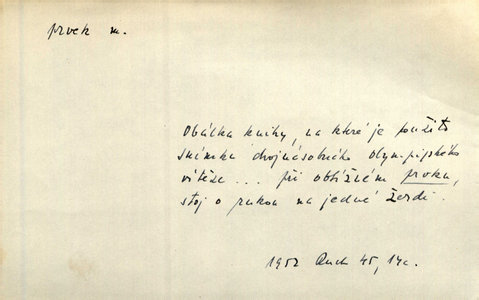 prvek m.
Obálka knihy, na které je použito
snímku dvojnásobného olympijského
vítěze... při obtížném prvku,
stoj o rukou na jedné žerdi.
1952 Ruch 45, 14c.